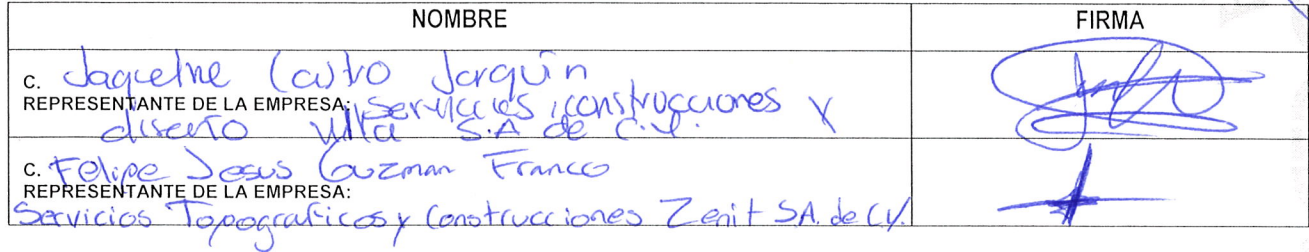 NOMBRE FIRMA
C. Jaqueline Castro Jarquin
REPRESENTANTE DE LA EMPRESA: Servicios, construcciones y
diseño Villa S.A de C.V.
C. Felipe Jesus Guzman Franco
REPRESENTANTE DE LA EMPRESA:
Servicios Topograficos y Construcciones Zenit SA. de CV.